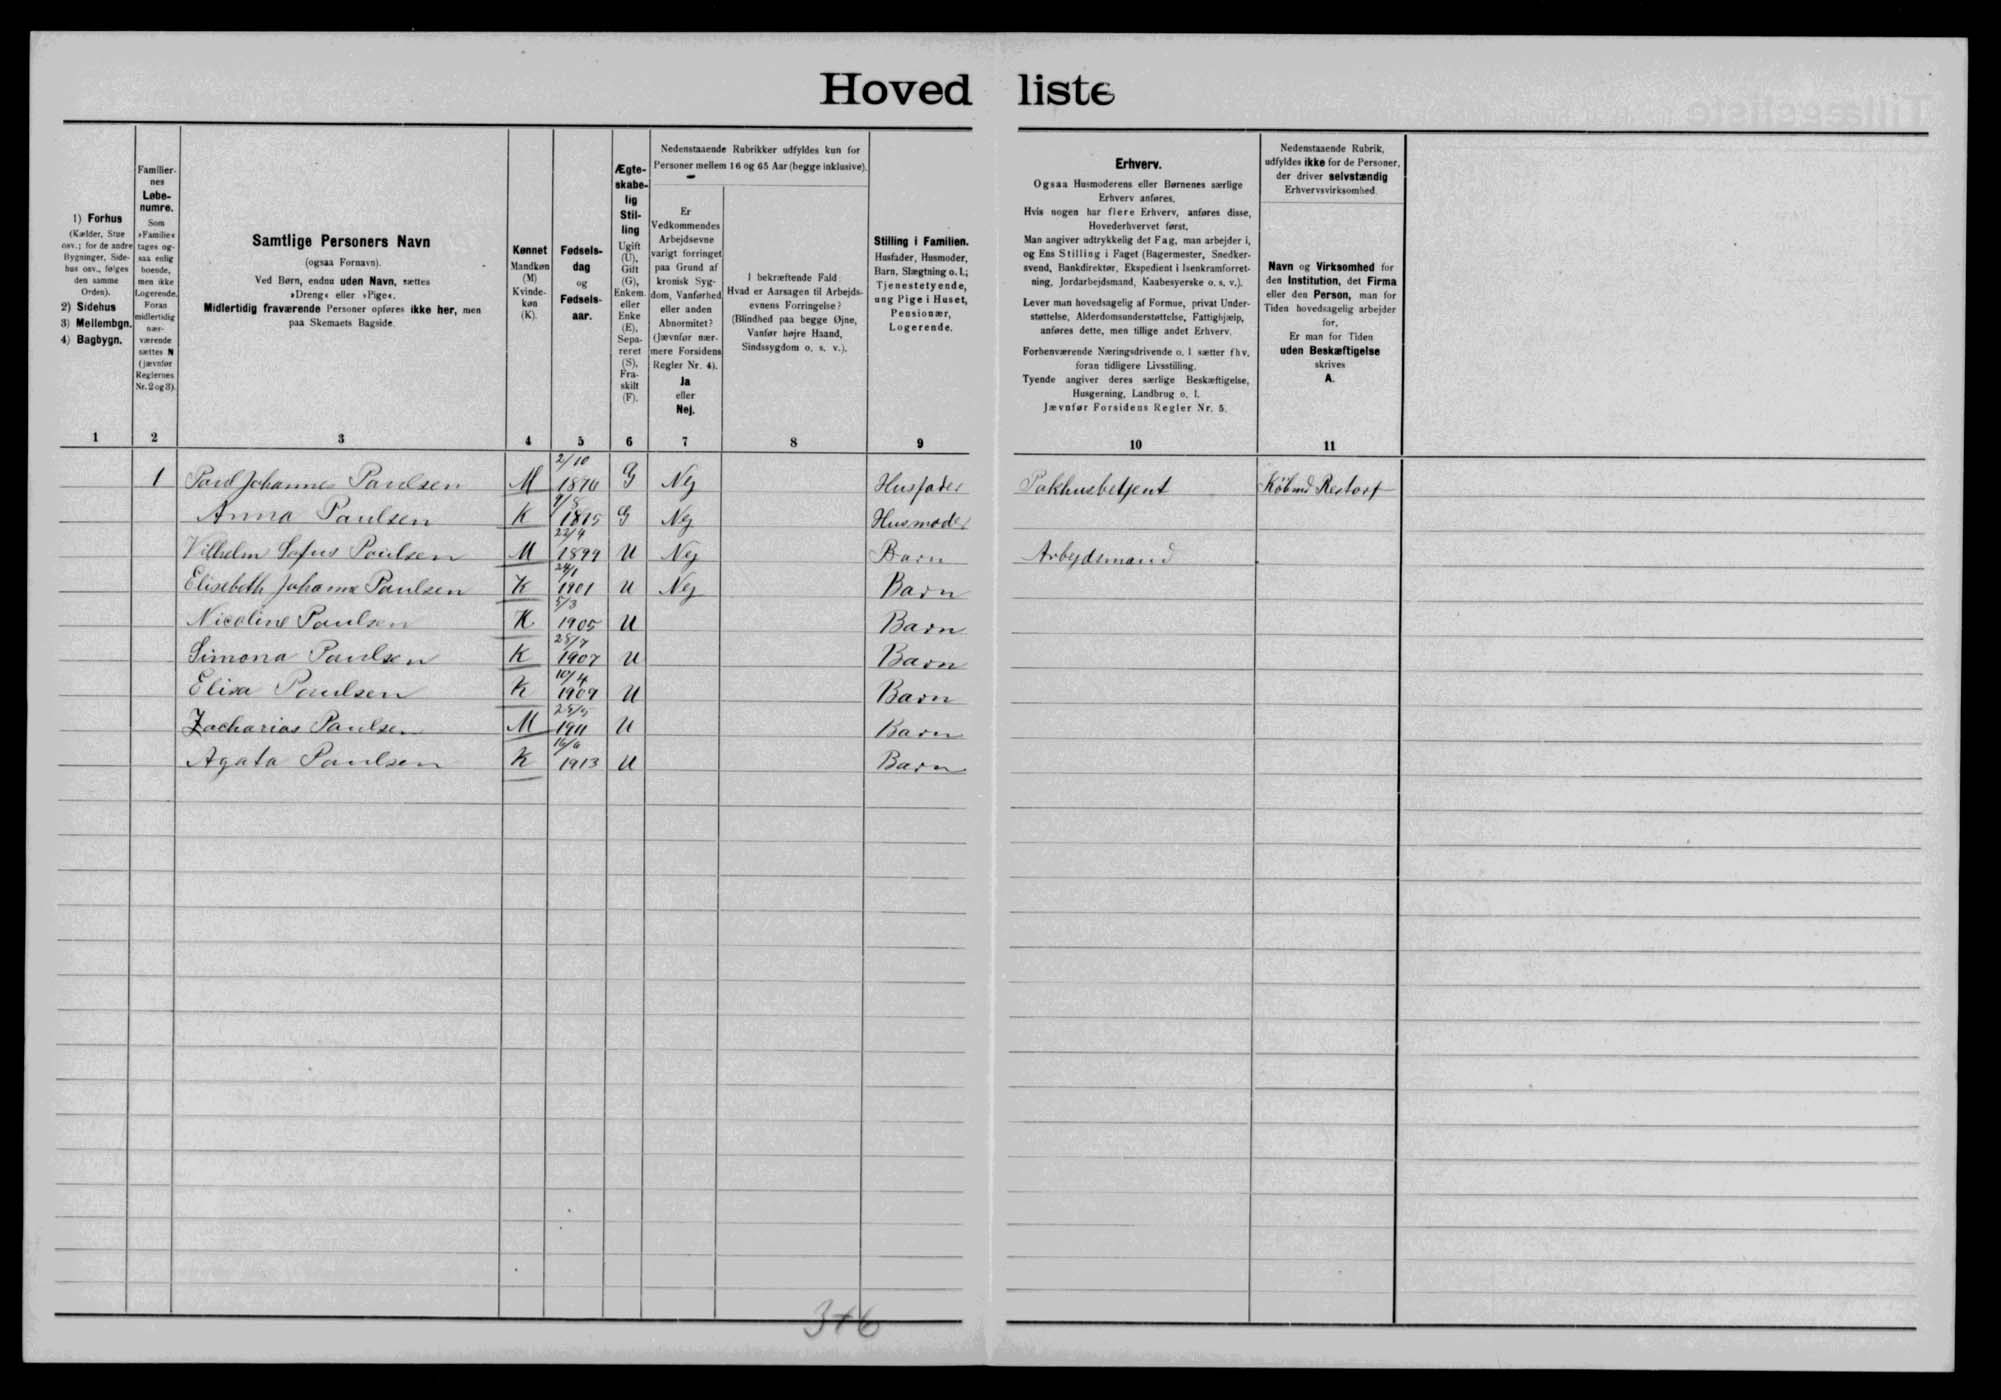 Hoved liste
1) Forhus
(Kælder, Stue
osv.; for de andre
Bygninger, Side-
hus osv., følges
den samme
Orden).
2) Sidehus
3) Mellembgn.
4) Bagbygn.
Familier-
nes
Løbe-
numre.
Som
»Familie«
tages og-
saa enlig
boende,
men ikke
Logerende.
Foran
midlertidig
nær-
værende
sættes N
(jævnfør
Reglernes
Nr. 2 og 3).
Samtlige Personers Navn
(ogsaa Fornavn).
Ved Børn, endnu uden Navn, sættes
»Dreng« eller »Pige«.
Midlertidig fraværende Personer opføres ikke her, men
paa Skemaets Bagside.
Kønnet
Mandkøn
(M)
Kvinde-
køn
(K).
Fødsels-
dag
og
Fødsels-
aar.
Ægte-
skabe-
lig
Stil-
ling
Ugift
(U),
Gift
(G),
Enkem.
eller
Enke
(E),
Sepa-
reret
(S),
Fra-
skilt
(F).
Nedenstaaende Rubrikker udfyldes kun for
Personer mellem 16 og 65 Aar (begge inklusive).
Er
Vedkommendes
Arbejdsevne
varigt forringet
paa Grund af
kronisk Syg-
dom, Vanførhed
eller anden
Abnormitet?
(Jævnfør nær-
mere Forsidens
Regler Nr. 4).
Ja
eller
Nej.
I bekræftende Fald
Hvad er Aarsagen til Arbejds-
evnens Forringelse?
(Blindhed paa begge Øjne,
Vanfør højre Haand,
Sindssygdom o. s. v.).
Stilling i Familien.
Husfader, Husmoder,
Barn, Slægtning o. l.;
Tjenestetyende,
ung Pige i Huset,
Pensionær,
Logerende.
Erhverv.
Ogsaa Husmoderens eller Børnenes særlige
Erhverv anføres.
Hvis nogen har flere Erhverv, anføres disse,
Hovederhvervet først.
Man angiver udtrykkelig det Fag, man arbejder i,
og Ens Stilling i Faget (Bagermester, Snedker-
svend, Bankdirektør, Ekspedient i Isenkramforret-
ning, Jordarbejdsmand, Kaabesyerske o. s. v.).
Lever man hovedsagelig af Formue, privat Under-
støttelse, Alderdomsunderstøttelse, Fattighjælp,
anføres dette, men tillige andet Erhverv.
Forhenværende Næringsdrivende o. l. sætter fhv.
foran tidligere Livsstilling.
Tyende angiver deres særlige Beskæftigelse,
Husgerning, Landbrug o. l.
Jævnfør Forsidens Regler Nr. 5.
Nedenstaaende Rubrik,
udfyldes ikke for de Personer,
der driver selvstændig
Erhvervsvirksomhed.
Navn og Virksomhed for
den Institution, det Firma
eller den Person, man for
Tiden hovedsagelig arbejder
for.
Er man for Tiden
uden Beskæftigelse
skrives
A.
1 2 3 4 5 6 7 8 9 10 11
1 Paul Johannes Paulsen M 2/10 G Nej Husfader Pakhusbetjent Købmd Restorf
Anna Paulsen K 9/8 G Nej Husmoder
Vilhelm Sofus Paulsen M 22/4 1899 U Nej Barn Arbejdsmand
Elisebeth Johanne Paulsen K 24/1 1901 U Nej Barn
Nicoline Paulsen K 5/3 1905 U Barn
Simona Paulsen K 28/7 1907 U Barn
Elisa Paulsen K 10/4 1909 U Barn
Zacharias Paulsen M 28/5 1911 U Barn
Agata Paulsen K 16/6 1913 U Barn
3+6